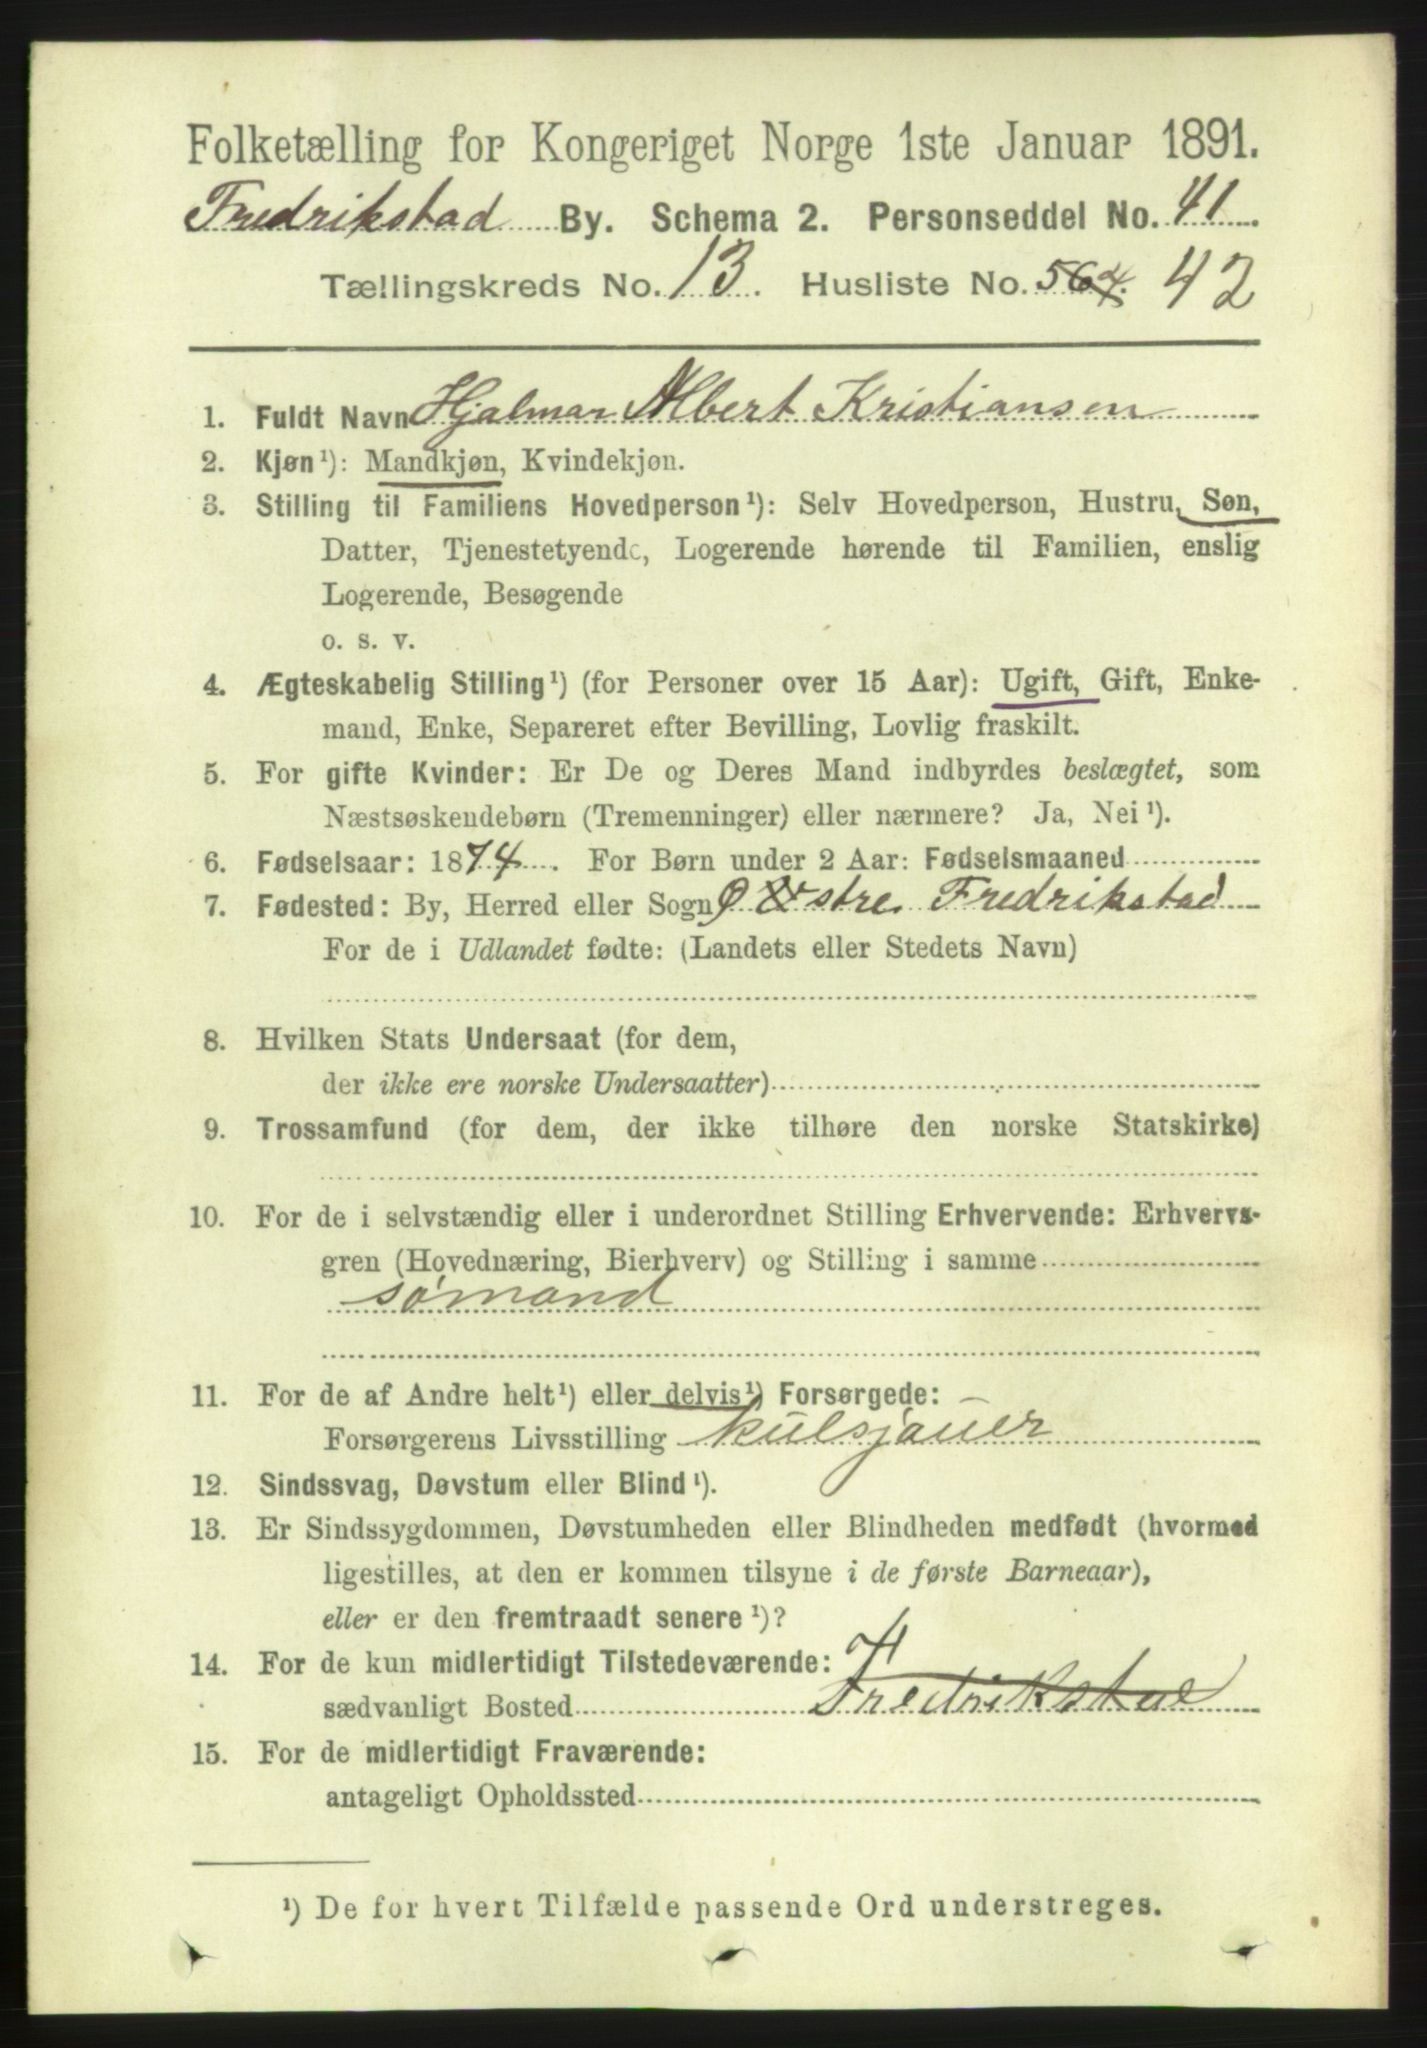 Folketælling for Kongeriget Norge 1ste Januar 1891.
Fredrikstad By. Schema 2. Personseddel No. 41.
Tællingskreds No. 13. Husliste No. 564. 42
1. Fuldt Navn Hjalmar Albert Kristiansen
2. Kjøn¹): Mandkjøn, Kvindekjøn.
3. Stilling til Familiens Hovedperson¹): Selv Hovedperson, Hustru, Søn,
Datter, Tjenestetyende, Logerende hørende til Familien, enslig
Logerende, Besøgende
o. s. v.
4. Ægteskabelig Stilling¹) (for Personer over 15 Aar): Ugift, Gift, Enke-
mand, Enke, Separeret efter Bevilling, Lovlig fraskilt.
5. For gifte Kvinder: Er De og Deres Mand indbyrdes beslægtet, som
Næstsøskendebørn (Tremenninger) eller nærmere? Ja, Nei¹).
6. Fødselsaar: 1874. For Børn under 2 Aar: Fødselsmaaned
7. Fødested: By, Herred eller Sogn Østre Fredrikstad
For de i Udlandet fødte: (Landets eller Stedets Navn)
8. Hvilken Stats Undersaat (for dem,
der ikke ere norske Undersaatter)
9. Trossamfund (for dem, der ikke tilhøre den norske Statskirke)
10. For de i selvstændig eller i underordnet Stilling Erhvervende: Erhvervs-
gren (Hovednæring, Bierhverv) og Stilling i samme
sømand
11. For de af Andre helt¹) eller delvis¹) Forsørgede:
Forsørgerens Livsstilling kulsjauer
12. Sindssvag, Døvstum eller Blind¹).
13. Er Sindssygdommen, Døvstumheden eller Blindheden medfødt (hvormed
ligestilles, at den er kommen tilsyne i de første Barneaar),
eller er den fremtraadt senere¹)?
14. For de kun midlertidigt Tilstedeværende:
sædvanligt Bosted Fredrikstad
15. For de midlertidigt Fraværende:
antageligt Opholdssted
¹) De for hvert Tilfælde passende Ord understreges.